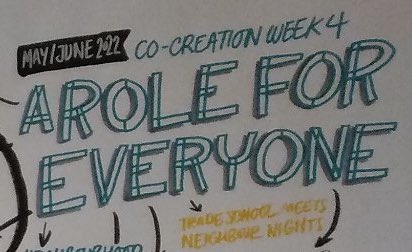 MAY/JUNE 2022
CO-CREATION WEEK 4
A ROLE FOR
EVERYONE
TRADE SCHOOL MEETS
NEIGHBOUR NIGHTS